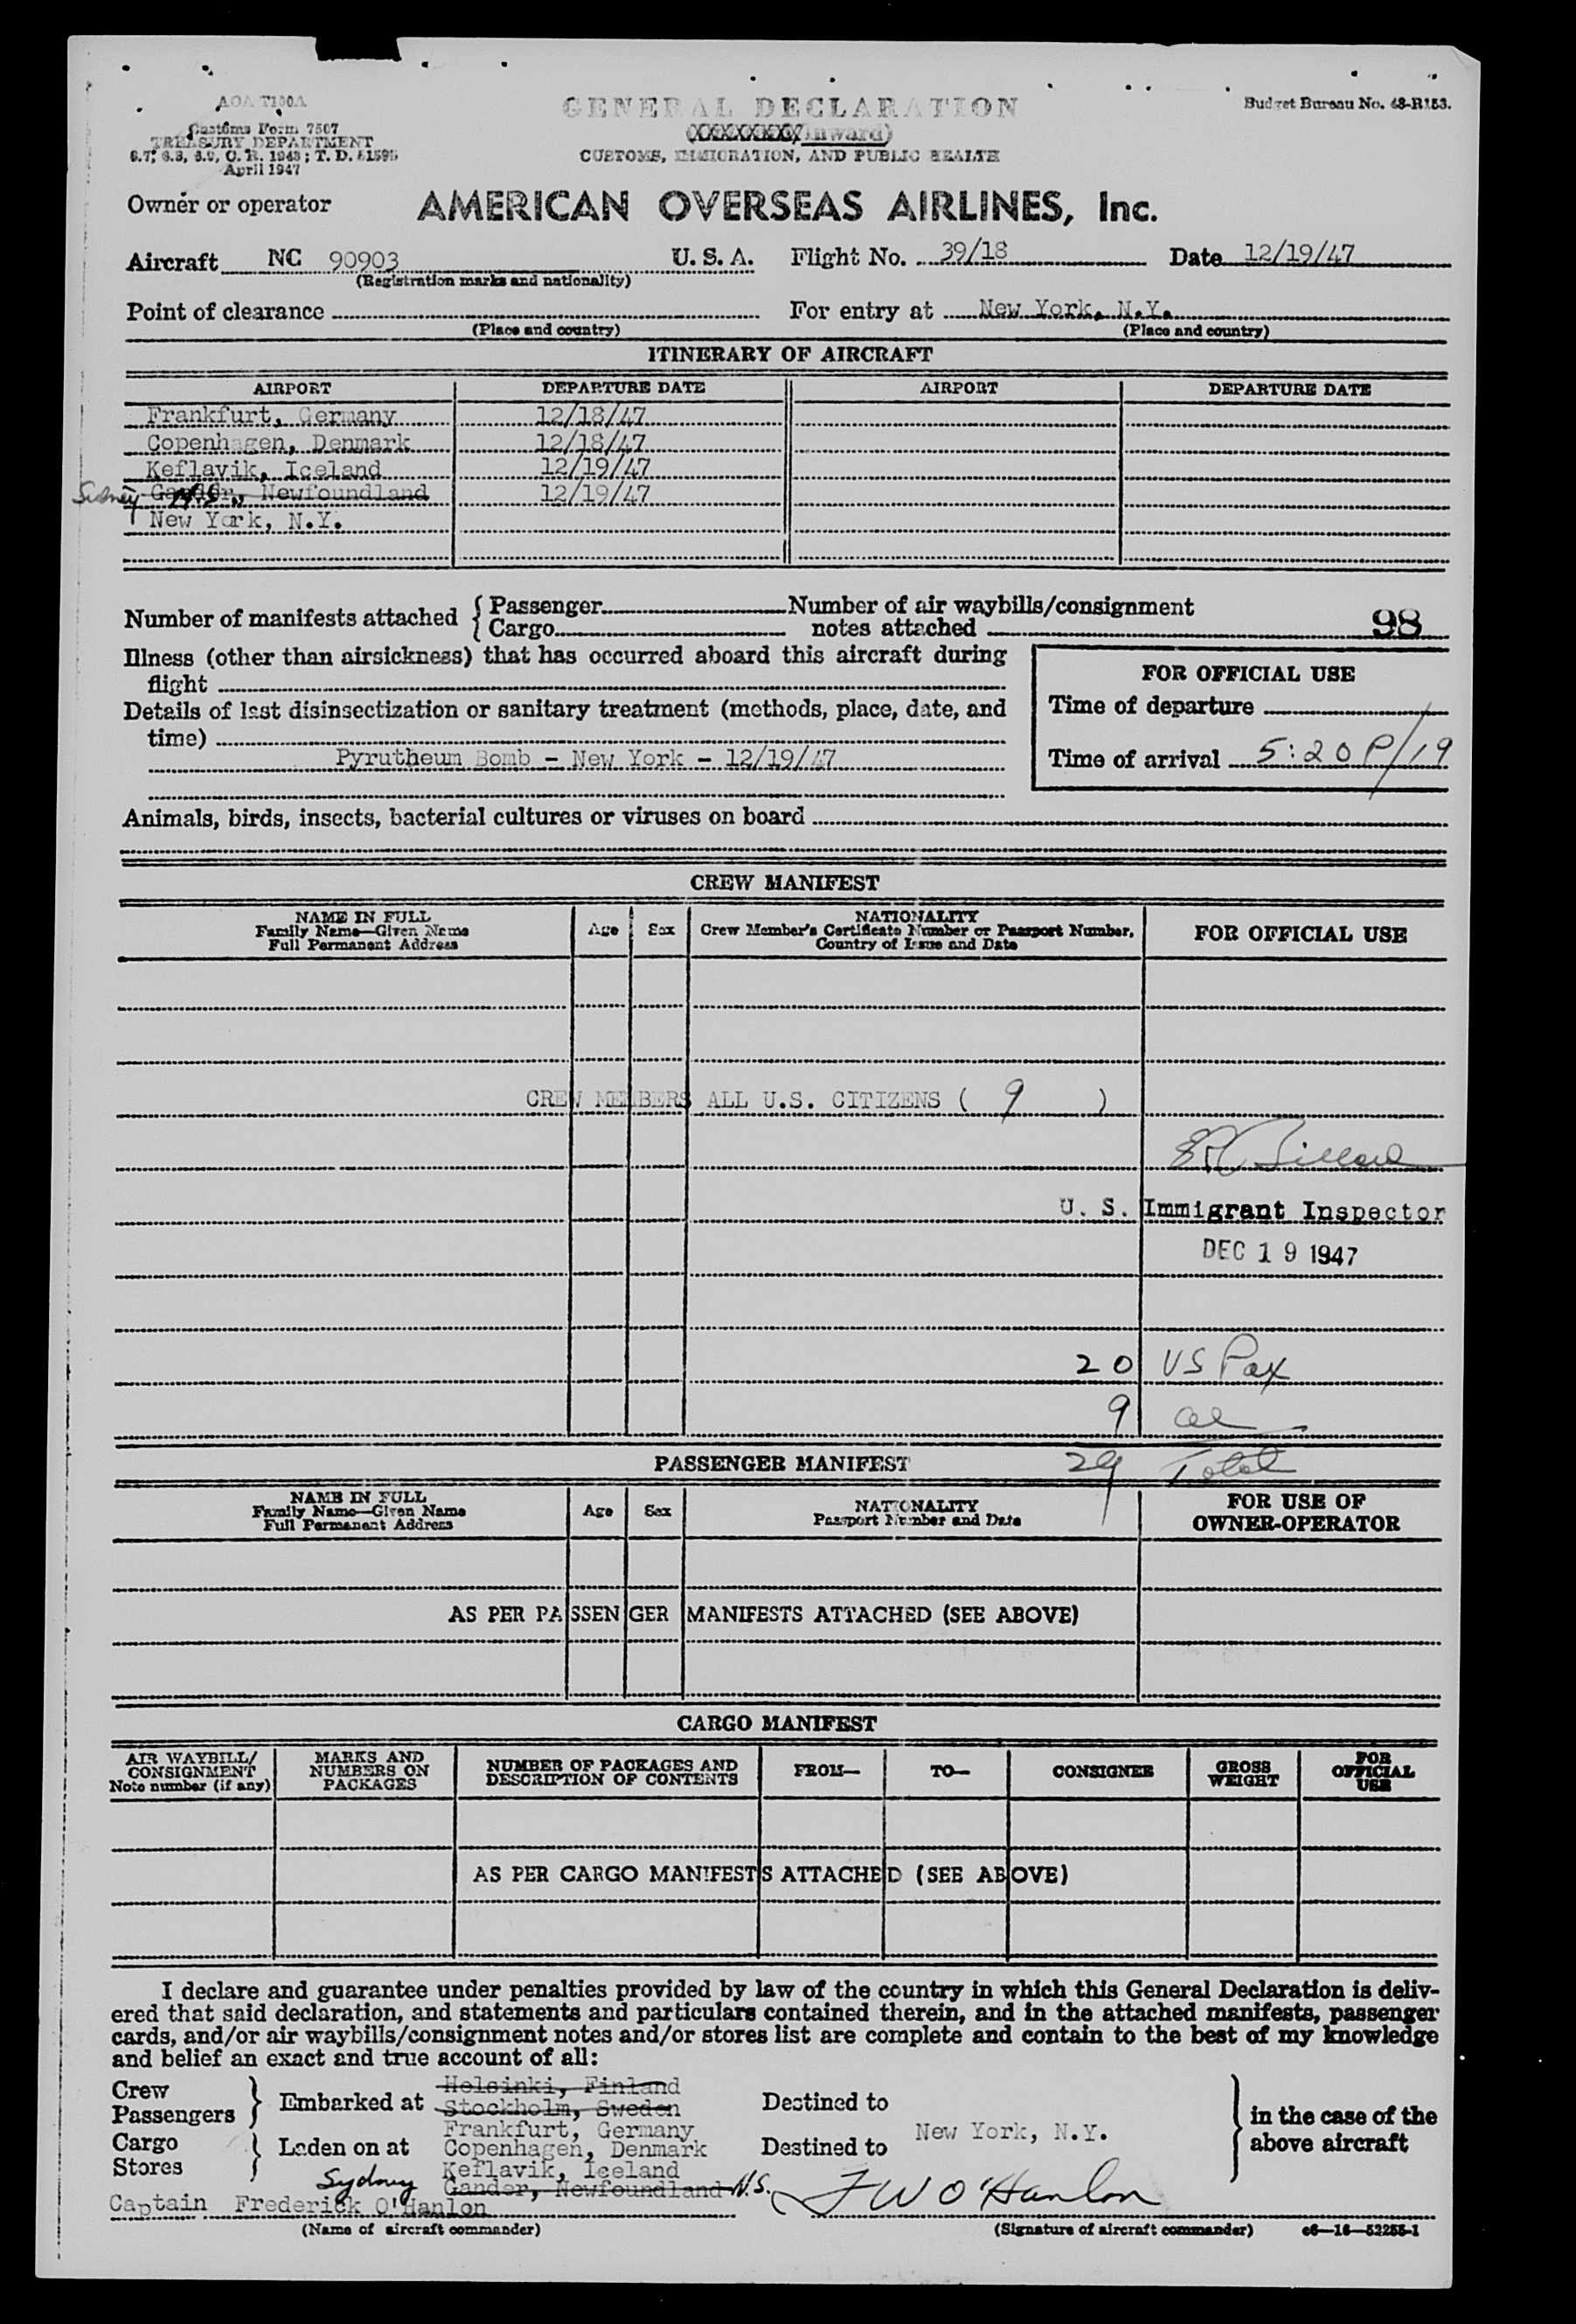 AOA T100A
Customs Form 7507
TREASURY DEPARTMENT
6.7, 6.8, 6.9, C. R. 1943; T. D. 51595
April 1947
GENERAL DECLARATION
(XXXXXXXX/Inward)
CUSTOMS, IMMIGRATION, AND PUBLIC HEALTH
Budget Bureau No. 48-R153.
Owner or operator AMERICAN OVERSEAS AIRLINES, Inc.
Aircraft NC 90903 U. S. A. Flight No. 39/18 Date 12/19/47
(Registration marks and nationality)
Point of clearance For entry at New York, N.Y.
(Place and country) (Place and country)
ITINERARY OF AIRCRAFT
AIRPORT DEPARTURE DATE AIRPORT DEPARTURE DATE
Frankfurt, Germany 12/18/47
Copenhagen, Denmark 12/18/47
Keflavik, Iceland 12/19/47
Sidney N.S. Gander, Newfoundland 12/19/47
New York, N.Y.
Number of manifests attached { Passenger Number of air waybills/consignment
Cargo notes attached 98
Illness (other than airsickness) that has occurred aboard this aircraft during
flight
Details of last disinsectization or sanitary treatment (methods, place, date, and
time)
Pyrutheum Bomb - New York - 12/19/47
FOR OFFICIAL USE
Time of departure
Time of arrival 5:20P/19
Animals, birds, insects, bacterial cultures or viruses on board
CREW MANIFEST
NAME IN FULL
Family Name—Given Name
Full Permanent Address
Age Sex
NATIONALITY
Crew Member's Certificate Number or Passport Number,
Country of Issue and Date
FOR OFFICIAL USE
CREW MEMBERS ALL U.S. CITIZENS ( 9 )
U. S. Immigrant Inspector
DEC 19 1947
20 US Pax
9
29 Total
PASSENGER MANIFEST
NAME IN FULL
Family Name—Given Name
Full Permanent Address
Age Sex
NATIONALITY
Passport Number and Date
FOR USE OF
OWNER-OPERATOR
AS PER PASSENGER MANIFESTS ATTACHED (SEE ABOVE)
CARGO MANIFEST
AIR WAYBILL/
CONSIGNMENT
Note number (if any)
MARKS AND
NUMBERS ON
PACKAGES
NUMBER OF PACKAGES AND
DESCRIPTION OF CONTENTS
FROM—
TO—
CONSIGNEE
GROSS
WEIGHT
FOR
OFFICIAL
USE
AS PER CARGO MANIFESTS ATTACHED (SEE ABOVE)
I declare and guarantee under penalties provided by law of the country in which this General Declaration is deliv-
ered that said declaration, and statements and particulars contained therein, and in the attached manifests, passenger
cards, and/or air waybills/consignment notes and/or stores list are complete and contain to the best of my knowledge
and belief an exact and true account of all:
Crew
Passengers } Embarked at
Cargo
Stores } Laden on at
Helsinki, Finland
Stockholm, Sweden
Frankfurt, Germany
Copenhagen, Denmark
Keflavik, Iceland
Sydney Gander, Newfoundland N.S.
Destined to
Destined to
New York, N.Y.
} in the case of the
above aircraft
Captain Frederick O'Hanlon
(Name of aircraft commander)
F W O'Hanlon
(Signature of aircraft commander) c6—16—52255-1